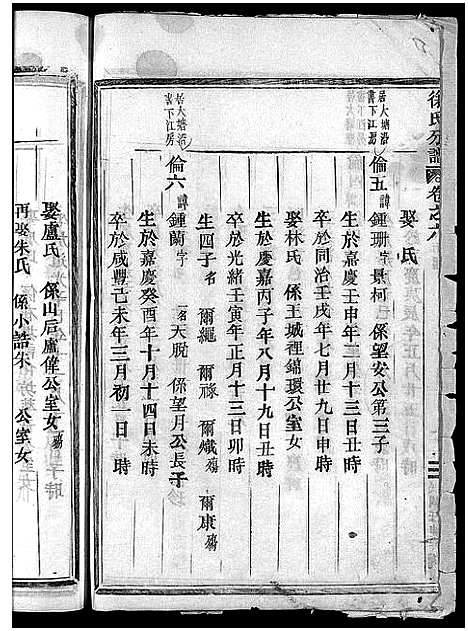 徐氏分譜 卷之六
娶 氏
居大塘沿書下江房
倫五 諱鍾珊 字景柯 係望安公第三子
生於嘉慶壬申年三月十三日丑時
卒於同治壬戌年七月廿九日申時
娶林氏 係王城裡錦環公室女
生於慶嘉丙子年八月十九日丑時
卒於光緒壬寅年正月十三日卯時
生四子 名 爾繩 爾祿 爾熾 爾康
居大塘沿書下江房
倫六 諱鍾蘭 字 一名天脫 係望月公長子
生於嘉慶癸酉年十月十四日未時
卒於咸豐己未年三月初一日 時
娶盧氏 係山后盧偉公室女
再娶朱氏 係小誥朱 公室女